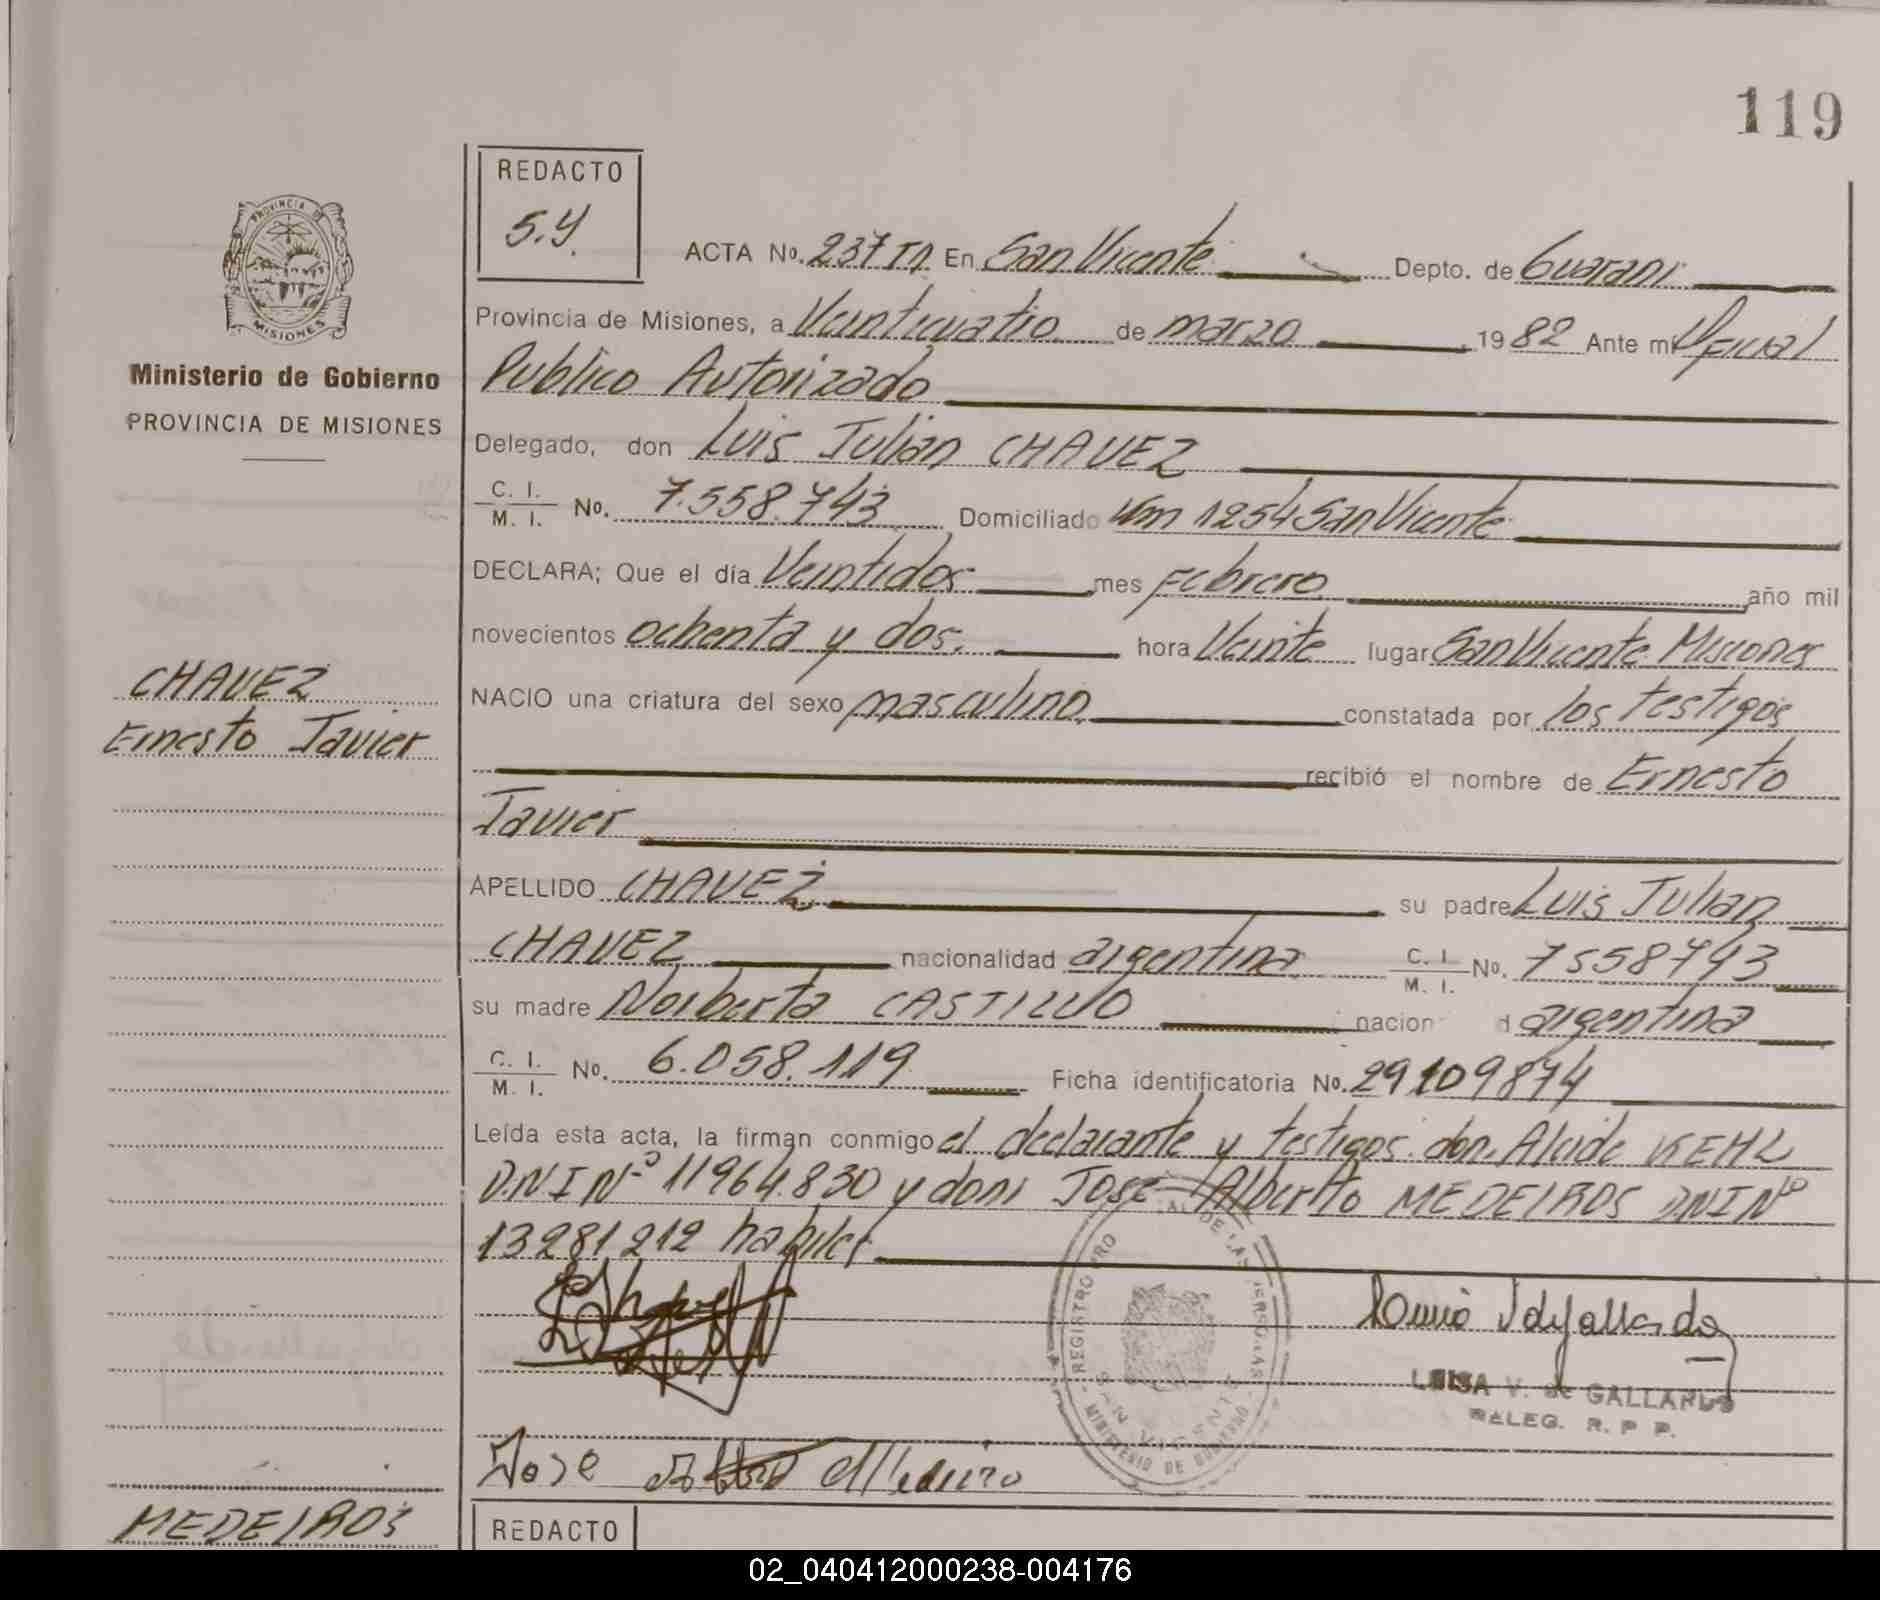 119
REDACTO
S.Y.
PROVINCIA DE
MISIONES
Ministerio de Gobierno
PROVINCIA DE MISIONES
ACTA No. 237 En San Vicente Depto. de Guarani
Provincia de Misiones, a Veinticuatro de marzo 1982 Ante mi Oficial
Publico Autorizado
Delegado, don Luis Julian CHAVEZ
C. I.
M. I. No. 7.558.743 Domiciliado Km 1254 San Vicente
DECLARA; Que el día Veintidos mes Febrero año mil
novecientos ochenta y dos. hora Veinte lugar San Vicente Misiones
CHAVEZ
Ernesto Javier
NACIO una criatura del sexo masculino constatada por los testigos
recibió el nombre de Ernesto
Javier
APELLIDO CHAVEZ su padre Luis Julian
CHAVEZ nacionalidad argentina C. I. M. I. No. 7558743
su madre Norberta CASTILLO nacion d argentina
C. I.
M. I. No. 6.058.119 Ficha identificatoria No. 29109874
Leída esta acta, la firman conmigo el declarante y testigos don Alcide KEHL
D.N.I Nº 11964.830 y don Jose Alberto MEDEIROS DNI Nº
13281212 habiles
REGISTRO DE LAS PERSONAS
SAN VICENTE
MINISTERIO DE GOBIERNO
V. de GALLARDO
DELEG. R. P P.
Jose
MEDEIROS
REDACTO
02_040412000238-004176